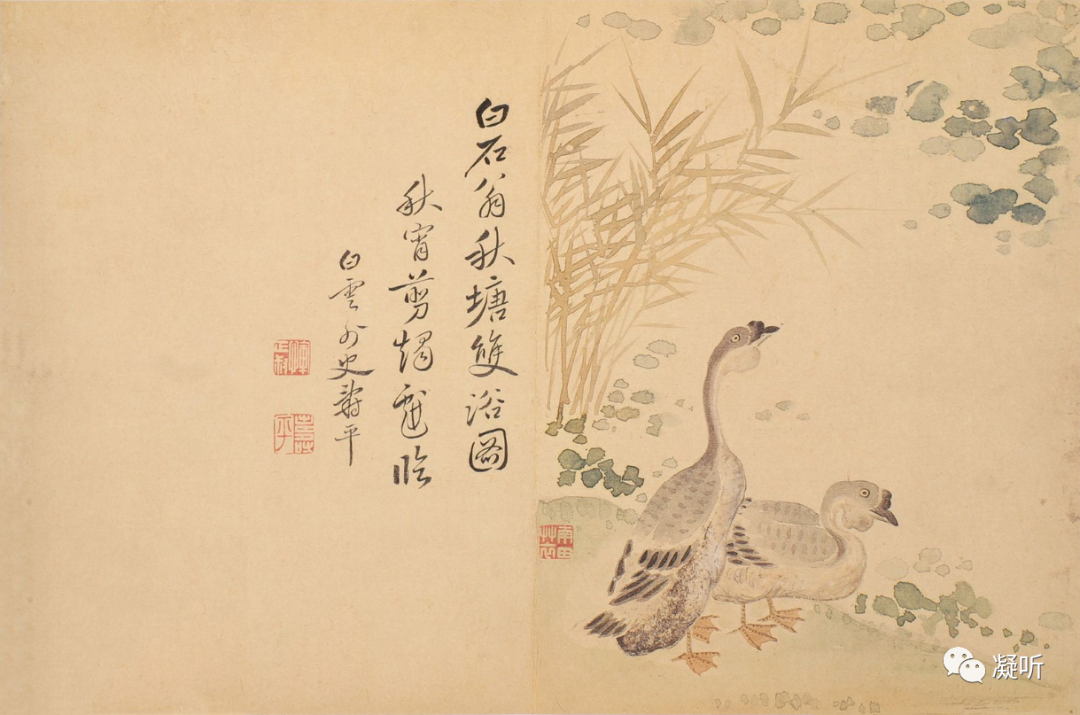 白石翁秋塘雙浴圖
秋宵剪燭戲臨
白雲外史壽平
凝听